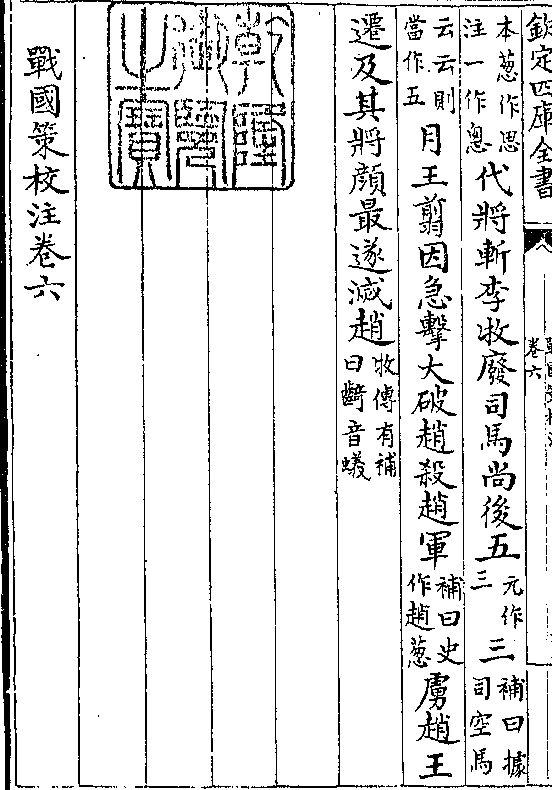 欽定四庫全書
卷六
本葱作思
注一作怱
代將斬李牧廢司馬尚後五
元作
三
三
補曰據
司空馬
云云則
當作五
月王翦因急擊大破趙殺趙軍
補曰史
作趙葱
虜趙王
遷及其將顔最遂滅趙
牧傳有補
曰齮音蟻
乾隆
御覽
之寶
戰國策校注卷六